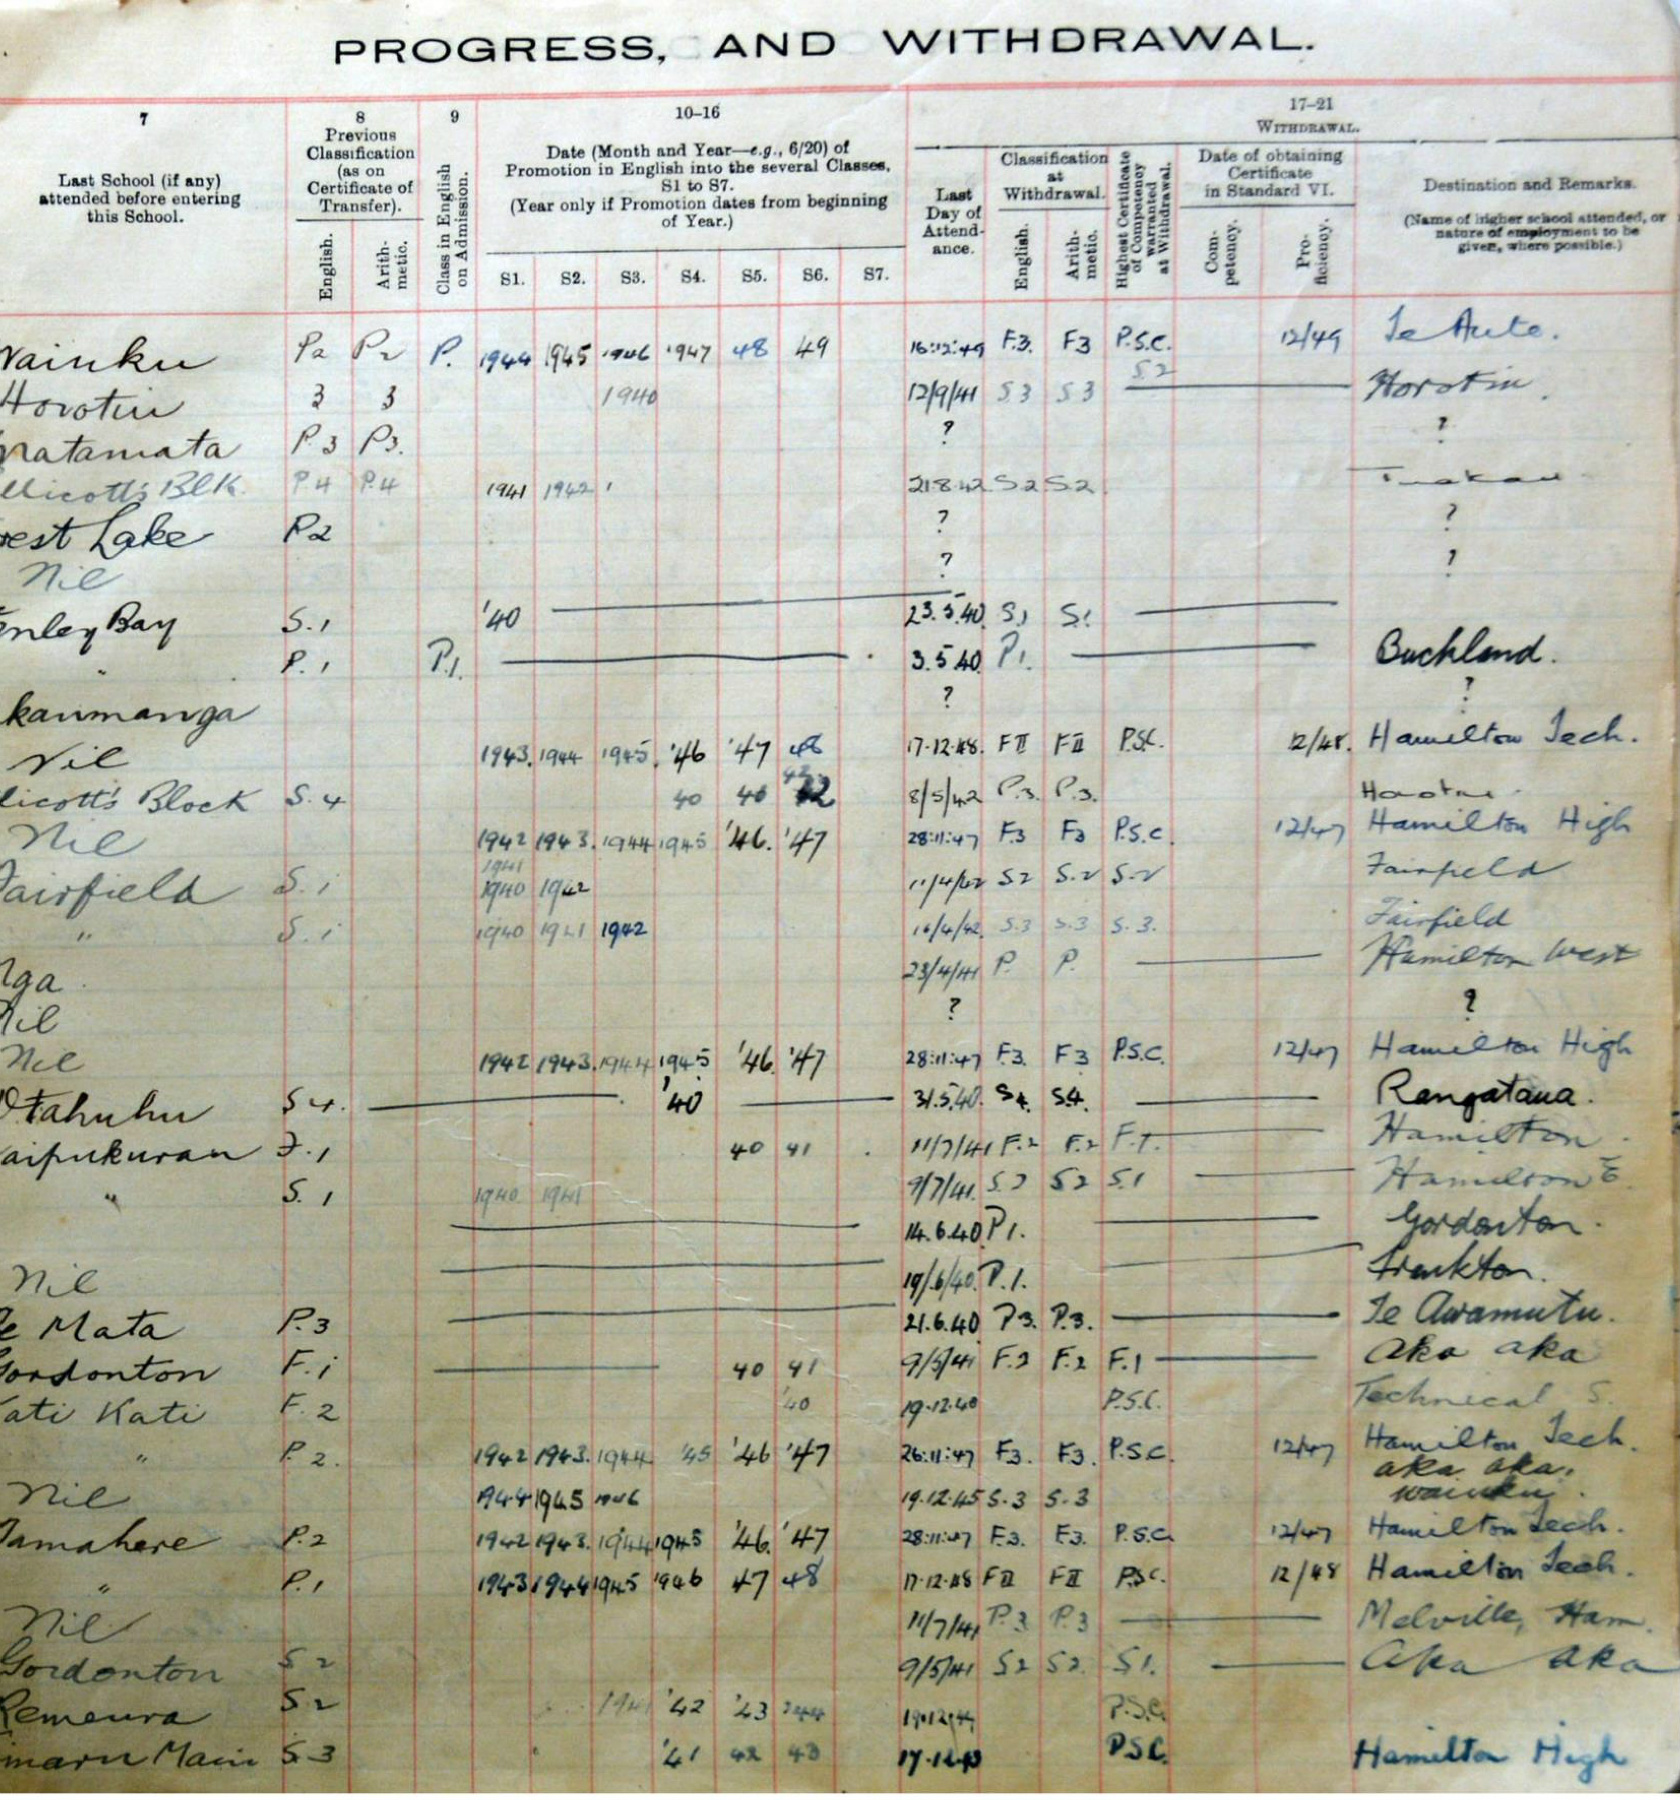 PROGRESS, AND WITHDRAWAL.
7 8 9 10–16 17–21
Last School (if any) attended before entering this School.
Previous Classification (as on Certificate of Transfer).
English. Arithmetic.
Class in English on Admission.
Date (Month and Year—e.g., 6/20) of Promotion in English into the several Classes, S1 to S7.
(Year only if Promotion dates from beginning of Year.)
S1. S2. S3. S4. S5. S6. S7.
WITHDRAWAL.
Last Day of Attendance.
Classification at Withdrawal.
English. Arithmetic.
Highest Certificate of Competency warranted at Withdrawal.
Date of obtaining Certificate in Standard VI.
Competency. Proficiency.
Destination and Remarks.
(Name of higher school attended, or nature of employment to be given, where possible.)
P2 P2 P. 1944 1945 1946 1947 48 49 16:12:49 F3. F3 P.S.C. 12/49 Te Aute.
Horotiu 3 3 1940 12/9/41 S3 S3 S2 Horotiu.
matamata P.3 P3. ? ?
Blk. P.4 P.4 1941 1942 21.8.42 S2 S2
est Lake P2 ? ?
Nil ? ?
nley Bay S.1 '40 23.5.40. S1 S1
P.1 P.1. 3.5.40. P1. Buckland.
kaumanga ? ?
Nil 1943. 1944 1945. '46 '47 48 17.12.48. F II F II P.S.C. 12/48. Hamilton Tech.
licott's Block S.4 40 40 42 8/5/42 P.3. P.3.
Nil 1942 1943. 1944 1945 '46. '47 28:11:47 F3 F3 P.S.C. 12/47 Hamilton High
1941
Fairfield S.1 1940 1942 11/4/42 S2 S.2 S.2 Fairfield
" S.1 1940 1941 1942 16/4/42. S.3 S.3 S.3. Fairfield
nga 23/4/41 P. P. Hamilton West
Nil ? ?
Nil 1942 1943. 1944 1945 '46. '47 28:11:47 F.3. F3 P.S.C. 12/47 Hamilton High
Otahuhu S4. '40 31.5.40. S4. S4.
aipukurau F.1 40 41 11/7/41 F.2 F.2 Hamilton.
" S.1 1940 1941 9/7/41. S.2 S2 S.1 Hamilton E.
14.6.40 P1. Gordonton.
Nil 19/6/40. P.1. Frankton.
e Mata P.3 21.6.40 P3. P.3. Te Awamutu.
Gordonton F.1 40 41 9/5/41 F.2 F.2 F.1 Aka aka
ati Kati F.2 '40 19.12.40 P.S.C. Technical S.
" P.2. 1942 1943. 1944 '45 '46 '47 26:11:47 F3. F3. P.S.C. 12/47 Hamilton Tech.
Nil 1944 1945 1946 19.12.45 S.3 S.3 aka aka.
waiuku.
Tamahere P.2 1942 1943. 1944 1945 '46. '47 28:11:47 F.3. F.3. P.S.C. 12/47 Hamilton Tech.
" P.1 1943 1944 1945 1946 47 48 17.12.48 F II F II P.S.C. 12/48 Hamilton Tech.
Nil 11/7/41 P.3 P.3 Melville, Ham.
Gordonton S2 9/5/41 S2 S2. S1. Aka aka
Remuera S.2 1941 '42 '43 '44 19.12.44 P.S.C.
maru Main S.3 '41 42 43 17.12.43 P.S.C. Hamilton High